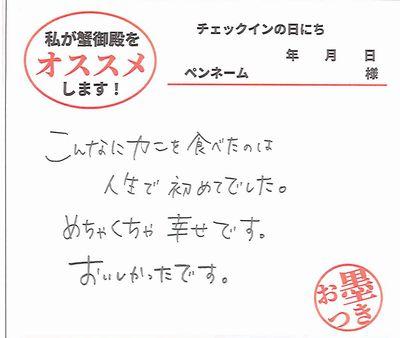 私が蟹御殿を
オススメ
します！
チェックインの日にち
年　月　日
ペンネーム　様
こんなにカニを食べたのは
人生で初めてでした。
めちゃくちゃ幸せです。
おいしかったです。
お墨つき